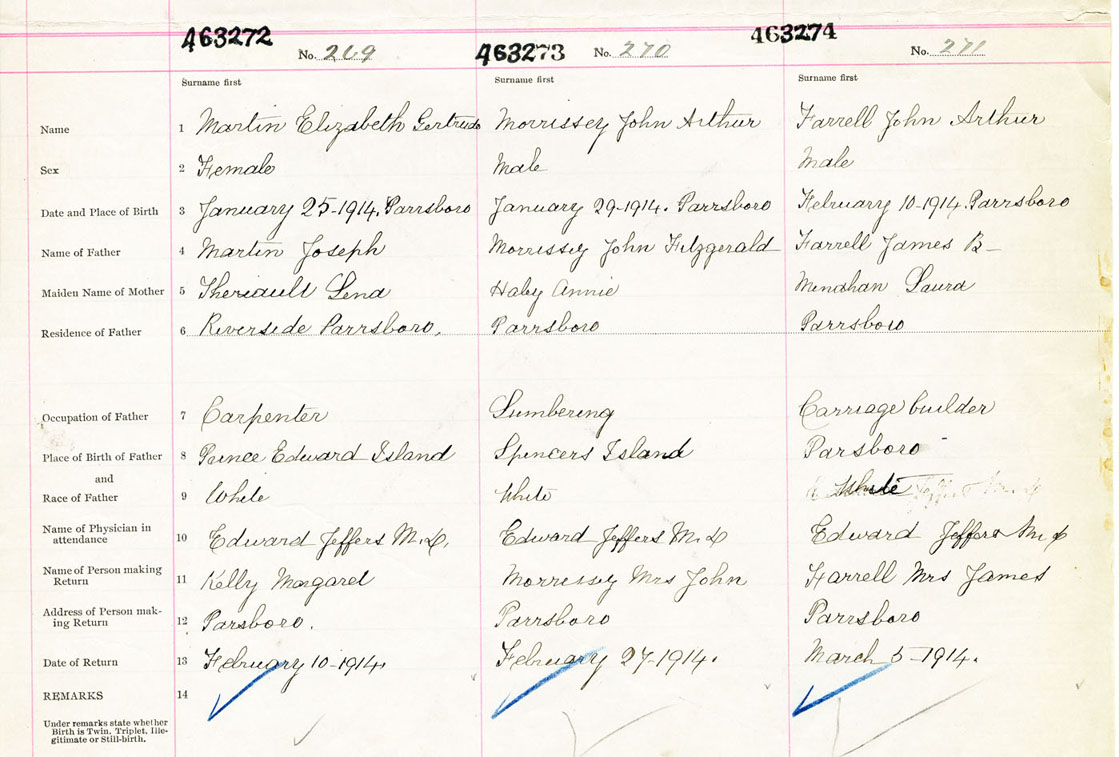 463272 No. 269 463273 No. 270 463274 No. 271
Surname first Surname first Surname first
Name 1 Martin Elizabeth Gertrude Morrissey John Arthur Farrell John Arthur
Sex 2 Female Male Male
Date and Place of Birth 3 January 25-1914. Parrsboro January 29-1914. Parrsboro February 10-1914. Parrsboro
Name of Father 4 Martin Joseph Morrissey John Fitzgerald Farrell James B-
Maiden Name of Mother 5 Theriault Lena Haley Annie Menahan Laura
Residence of Father 6 Riverside Parrsboro, Parrsboro Parrsboro
Occupation of Father 7 Carpenter Lumbering Carriage builder
Place of Birth of Father 8 Prince Edward Island Spencers Island Parsboro
and
Race of Father 9 White White White
Name of Physician in
attendance 10 Edward Jeffers M.D. Edward Jeffers M.D Edward Jeffers M.D
Name of Person making
Return 11 Kelly Margaret Morrissey Mrs John Farrell Mrs James
Address of Person mak-
ing Return 12 Parsboro. Parrsboro Parrsboro
Date of Return 13 February 10-1914. February 27-1914. March 5-1914.
REMARKS 14
Under remarks state whether
Birth is Twin, Triplet, Ille-
gitimate or Still-birth.